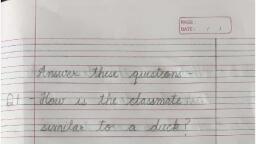 PAGE:
DATE: / /
Answer these questions -
Q1 - How is the classmate
similar to a duck?